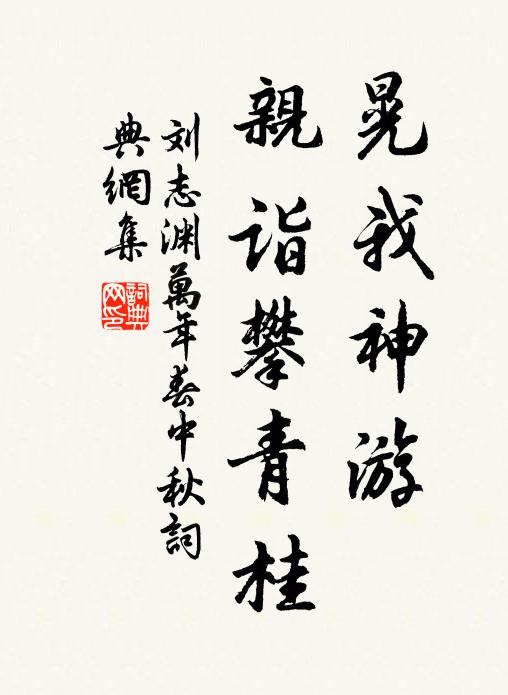 晃我神游
親詣攀青桂
刘志渊萬年春中秋詞
典網集
詞典網印